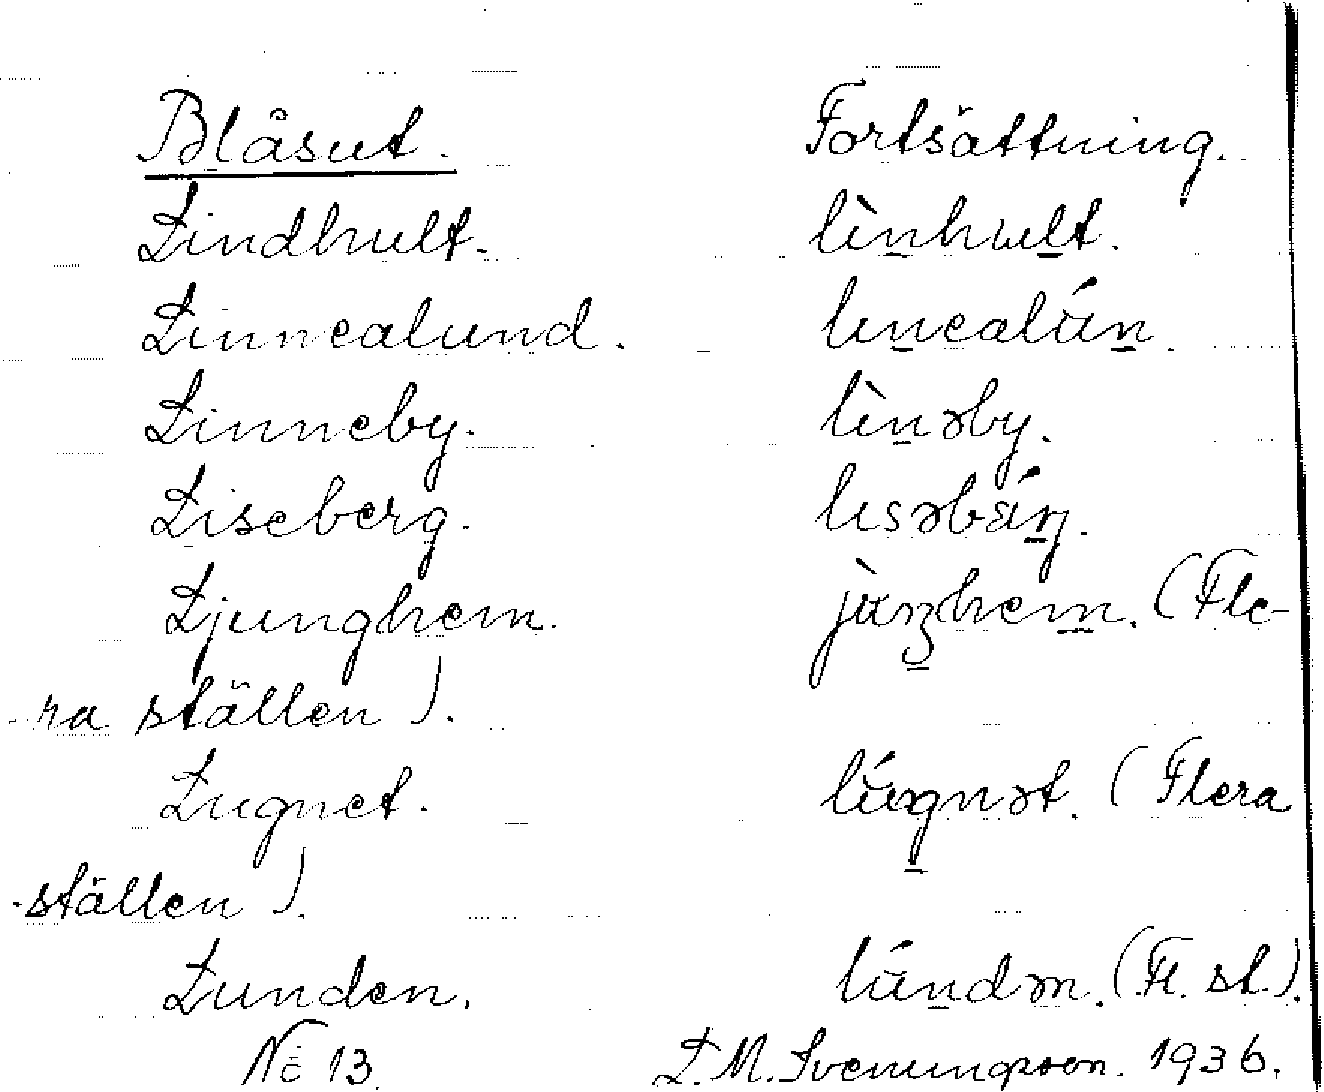 Blåsut. Fortsättning.
Lindhult. lìn̲hul̲t.
Linnealund. lɩn̲ealún̲.
Linneby. lìn̲əby.
Liseberg. lɩsəbárj̲.
Ljunghem. jùŋ̲hem̲. (Fle-
ra ställen).
Lugnet. lúg̲nət. (Flera
ställen).
Lunden. lún̲dən. (Fl. st.).
No 13. L. M. Svenungsson. 1936.